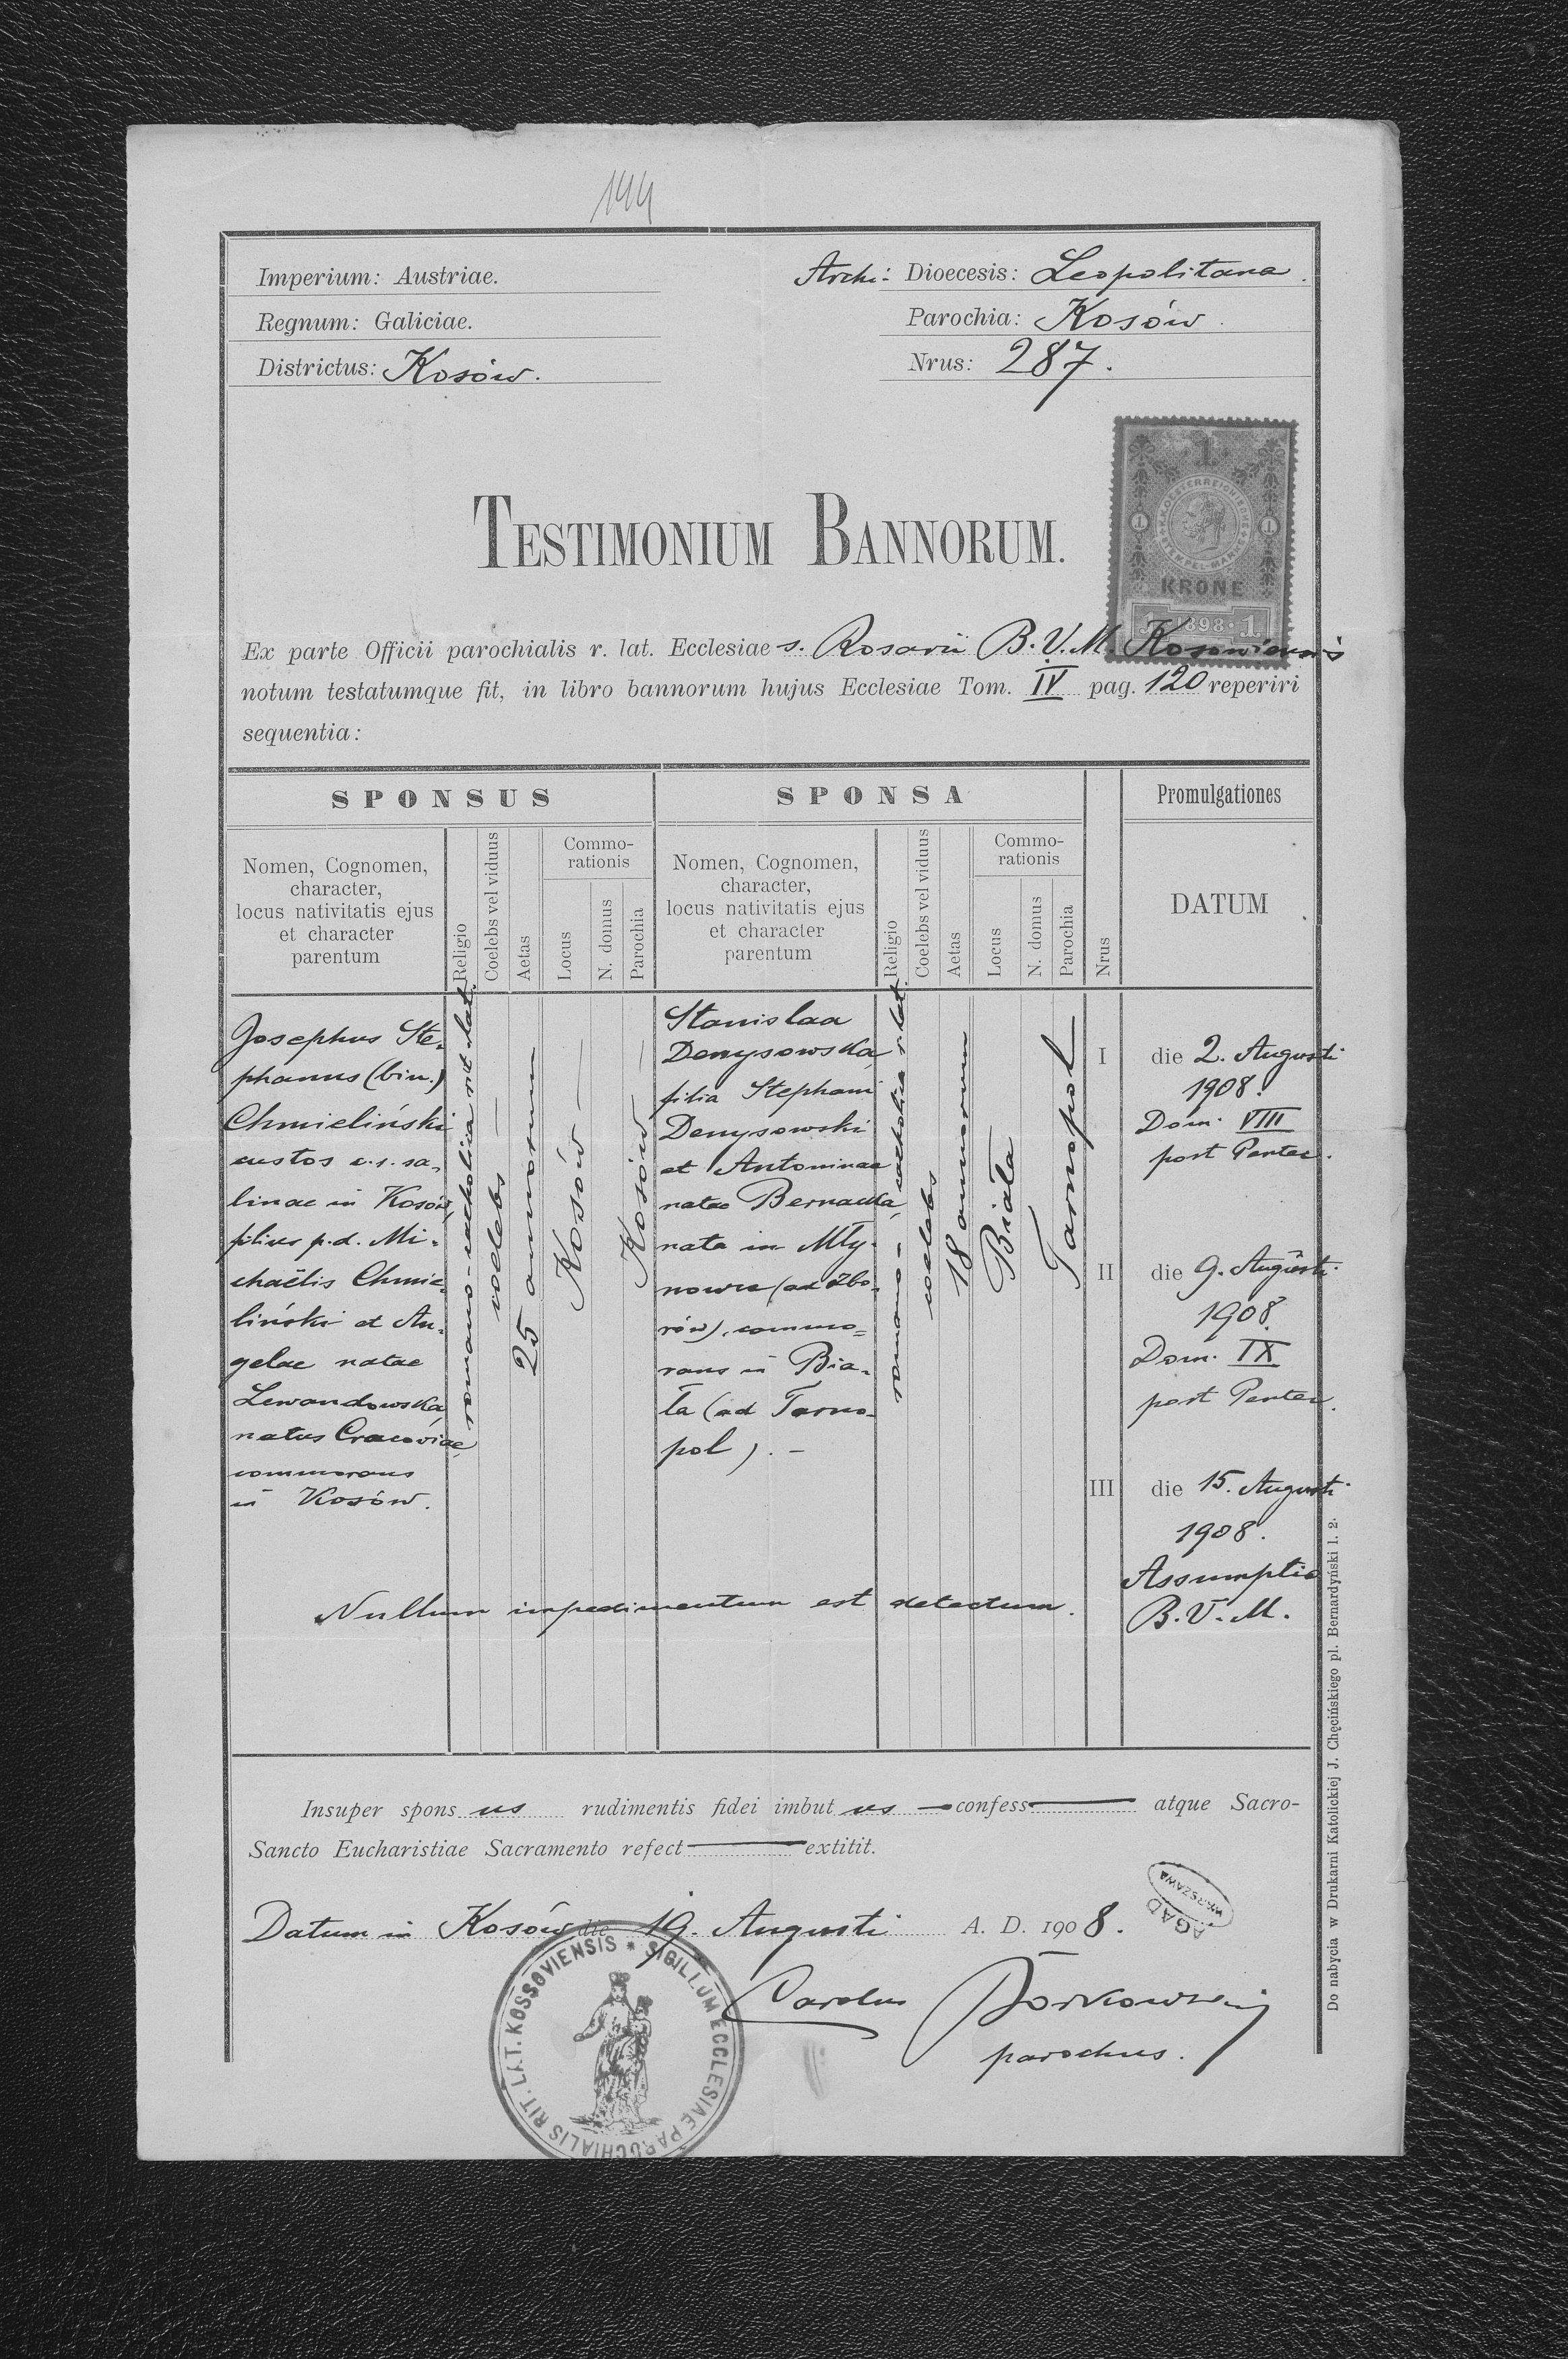 144
Imperium: Austriae.
Regnum: Galiciae.
Districtus: Kosów.
Archi- Dioecesis: Leopolitana.
Parochia: Kosów.
Nrus: 287.
1
K. K. OESTERREICHISCHE STEMPEL-MARKE
1 1
KRONE
1 1898 1
TESTIMONIUM BANNORUM.
Ex parte Officii parochialis r. lat. Ecclesiae s. Rosarii B. V. M. Kosoviensis
notum testatumque fit, in libro bannorum hujus Ecclesiae Tom. IV pag. 120 reperiri
sequentia:
SPONSUS
Nomen, Cognomen,
character,
locus nativitatis ejus
et character
parentum
Religio
Coelebs vel viduus
Aetas
Commo-
rationis
Locus
N. domus
Parochia
SPONSA
Nomen, Cognomen,
character,
locus nativitatis ejus
et character
parentum
Religio
Coelebs vel viduus
Aetas
Commo-
rationis
Locus
N. domus
Parochia
Nrus
Promulgationes
DATUM
Josephus Ste-
phanus (bin.)
Chmieliński
custos c. r. sa-
linae in Kosów,
filius p. d. Mi-
chaëlis Chmie-
liński et An-
gelae natae
Lewandowska
natus Cracoviae,
commorans
in Kosów.
romano-catholica rit. lat.
coelebs —
25 annorum
Kosów —
Kosów —
Stanislaa
Denysowska,
filia Stephani
Denysowski
et Antoninae
natae Bernacka,
nata in Mły-
nowce (ad Zbo-
rów), commo-
rans in Bia-
ła (ad Tarno-
pol). -
romano-catholica r. lat.
coelebs
18 annorum
Biała
Tarnopol
I die 2. Augusti
1908.
Dom. VIII
post Pentec.
II die 9. Augusti
1908.
Dom. IX
post Pentec.
III die 15. Augusti
1908.
Assumptio
B. V. M.
Nullum impedimentum est detectum.
Insuper spons us rudimentis fidei imbut us — confess — atque Sacro-
Sancto Eucharistiae Sacramento refect — extitit.
Datum in Kosów die 19. Augusti A. D. 1908.
AGAD
WARSZAWA
Carolus Borkowski
parochus.
SIGILLUM ECCLESIAE PAROCHIALIS RIT. LAT. KOSSOVIENSIS *
Do nabycia w Drukarni Katolickiej J. Chęcińskiego pl. Bernardyński l. 2.